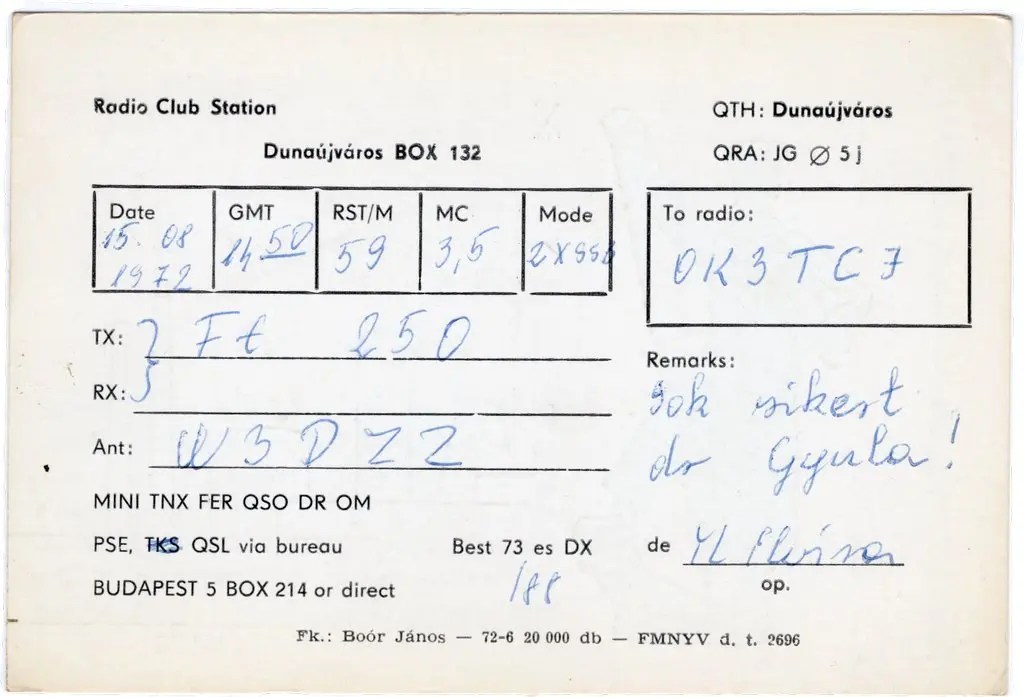 Radio Club Station
Dunaújváros BOX 132
QTH: Dunaújváros
QRA: JG Ø 5 j
Date GMT RST/M MC Mode
15. 08 1450 59 3,5 2XSSB
1972
To radio:
OK3TCF
TX: } Ft 250
RX:
Ant: W3DZZ
Remarks:
Sok sikert
dr Gyula!
MINI TNX FER QSO DR OM
PSE, TKS QSL via bureau
Best 73 es DX
/88
BUDAPEST 5 BOX 214 or direct
de YL Elvira
op.
Fk.: Boór János — 72-6 20 000 db — FMNYV d. t. 2696